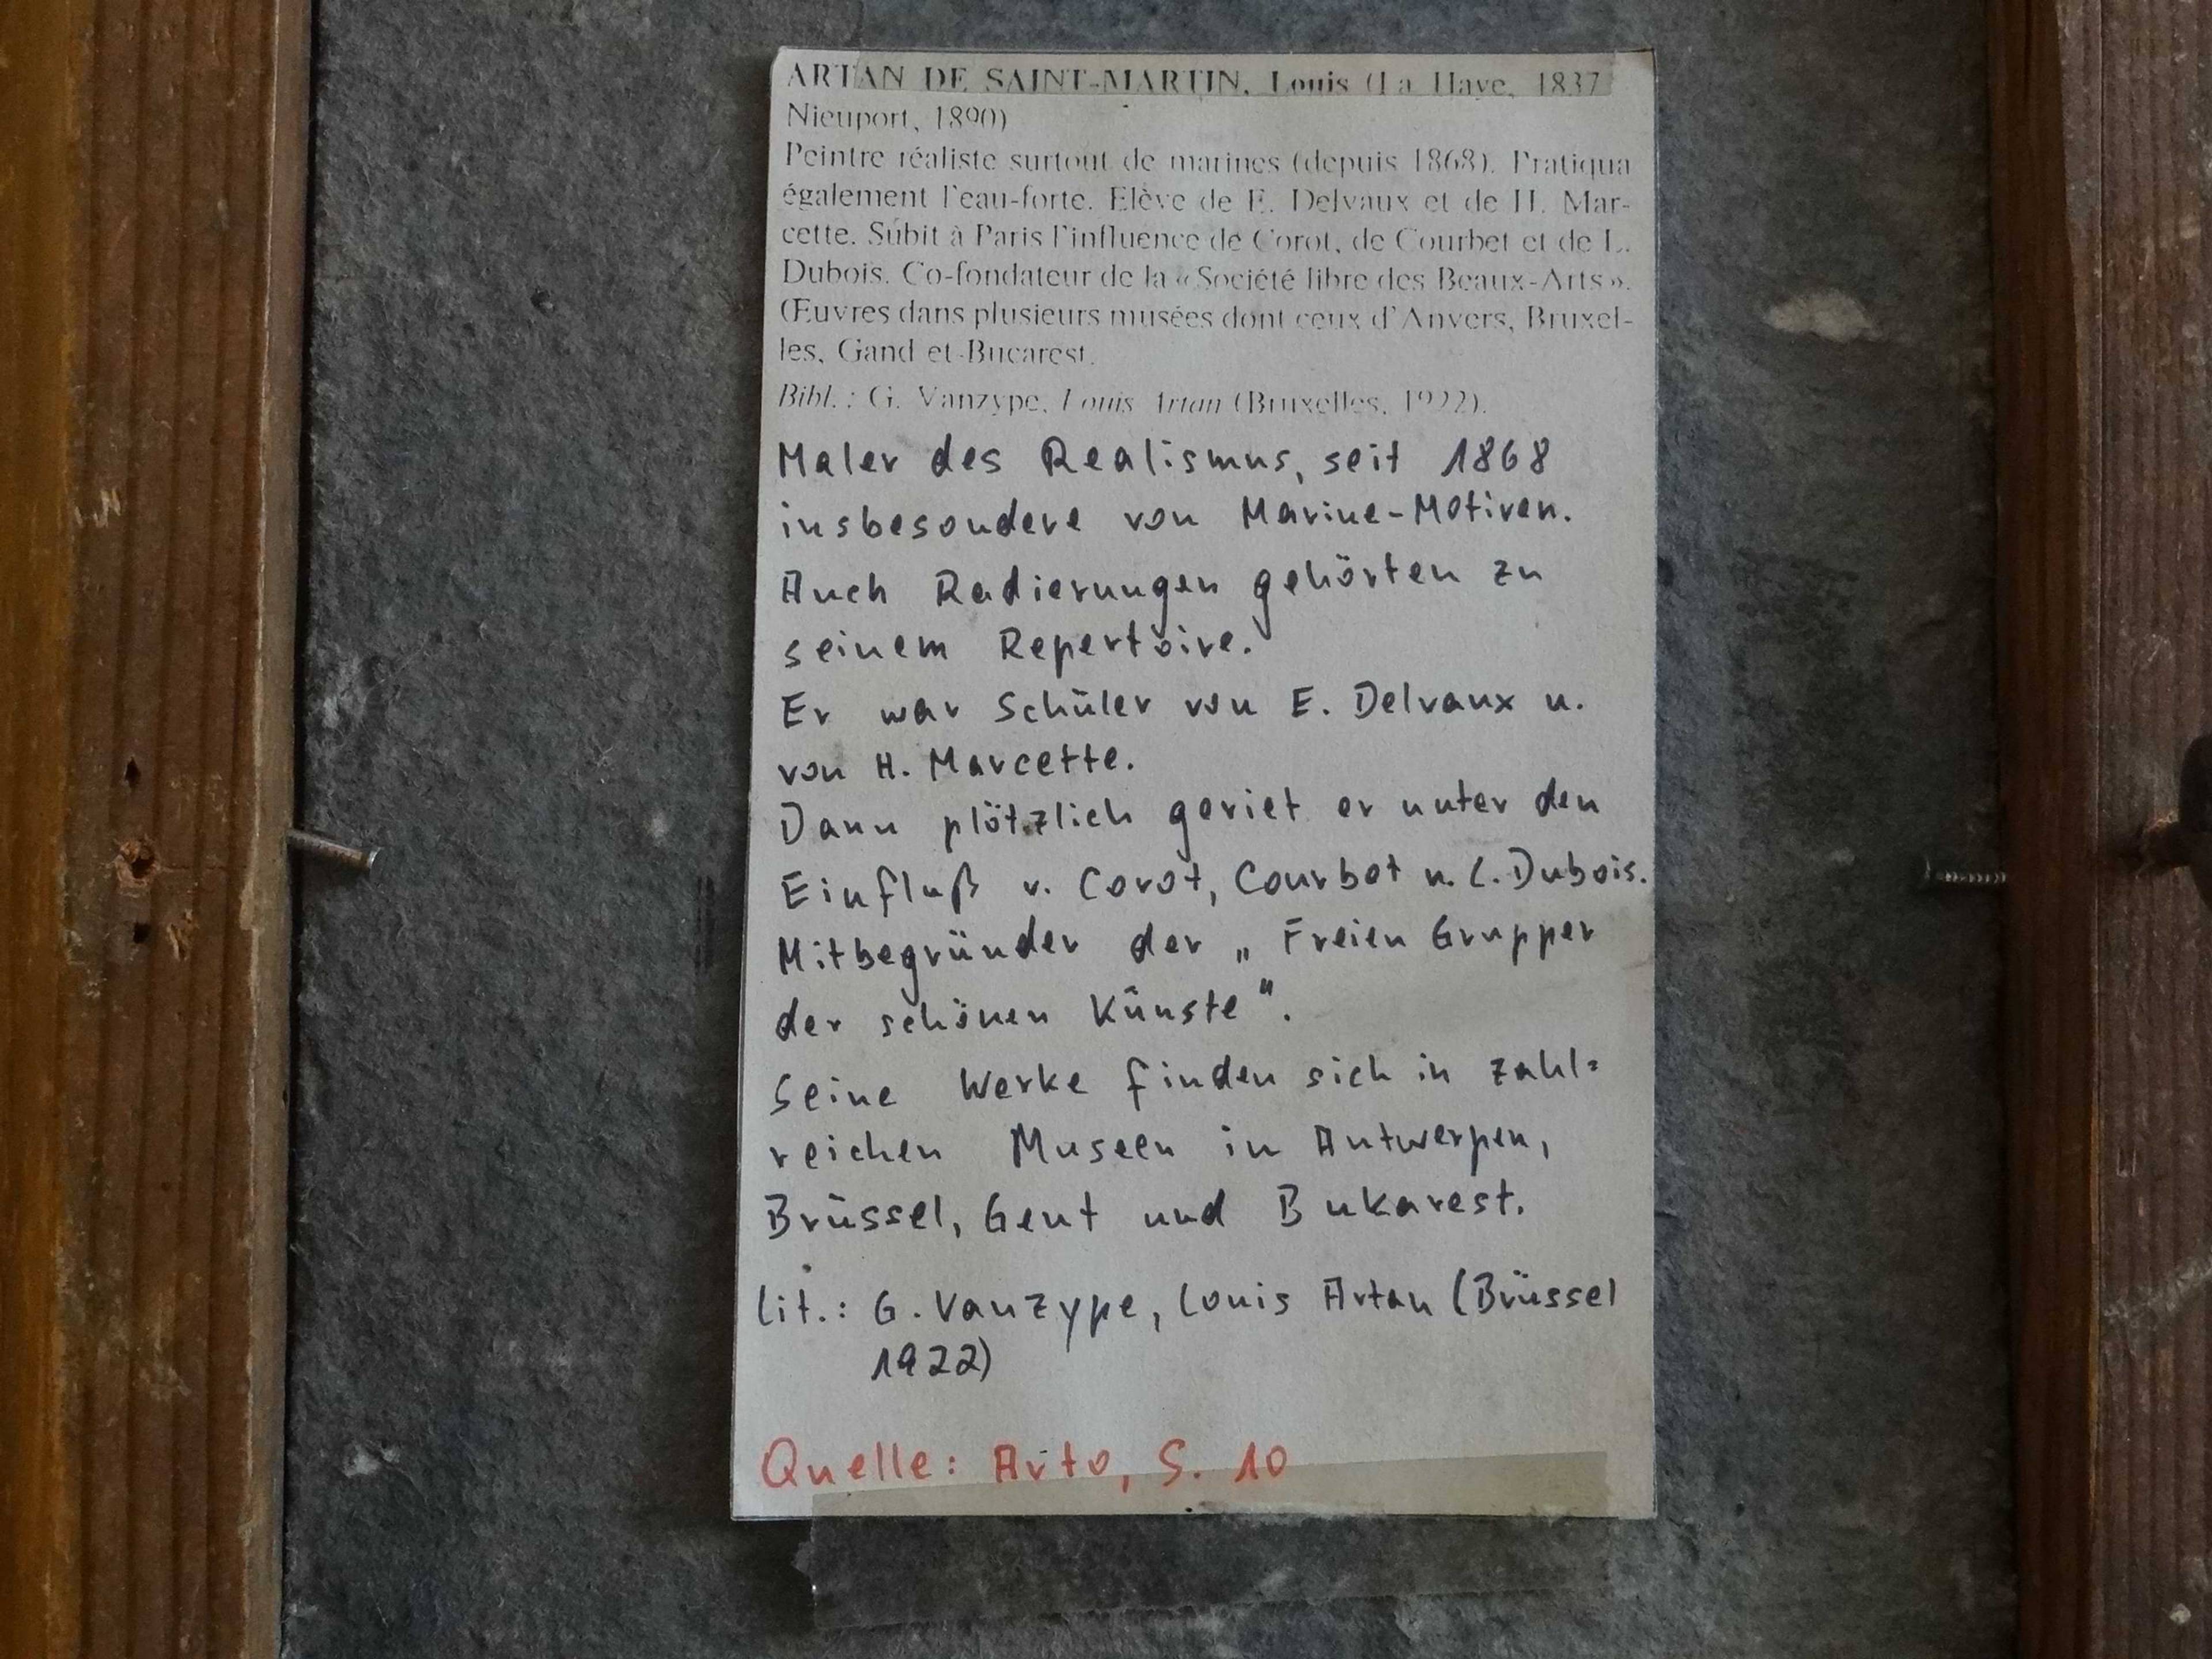 ARTAN DE SAINT-MARTIN, Louis (La Haye, 1837
Nieuport, 1890)
Peintre réaliste surtout de marines (depuis 1868). Pratiqua
également l'eau-forte. Elève de E. Delvaux et de H. Mar-
cette. Subit à Paris l'influence de Corot, de Courbet et de L.
Dubois. Co-fondateur de la «Société libre des Beaux-Arts».
Œuvres dans plusieurs musées dont ceux d'Anvers, Bruxel-
les, Gand et Bucarest.
Bibl. : G. Vanzype, Louis Artan (Bruxelles, 1922).
Maler des Realismus, seit 1868
insbesondere von Marine-Motiven.
Auch Radierungen gehörten zu
seinem Repertoire.
Er war Schüler von E. Delvaux u.
von H. Marcette.
Dann plötzlich geriet er unter den
Einfluß v. Corot, Courbet u. L. Dubois.
Mitbegründer der „Freien Grupper
der schönen Künste".
Seine Werke finden sich in zahl=
reichen Museen in Antwerpen,
Brüssel, Gent und Bukarest.
Lit.: G. Vanzype, Louis Artan (Brüssel
1922)
Quelle: Arto, S. 10